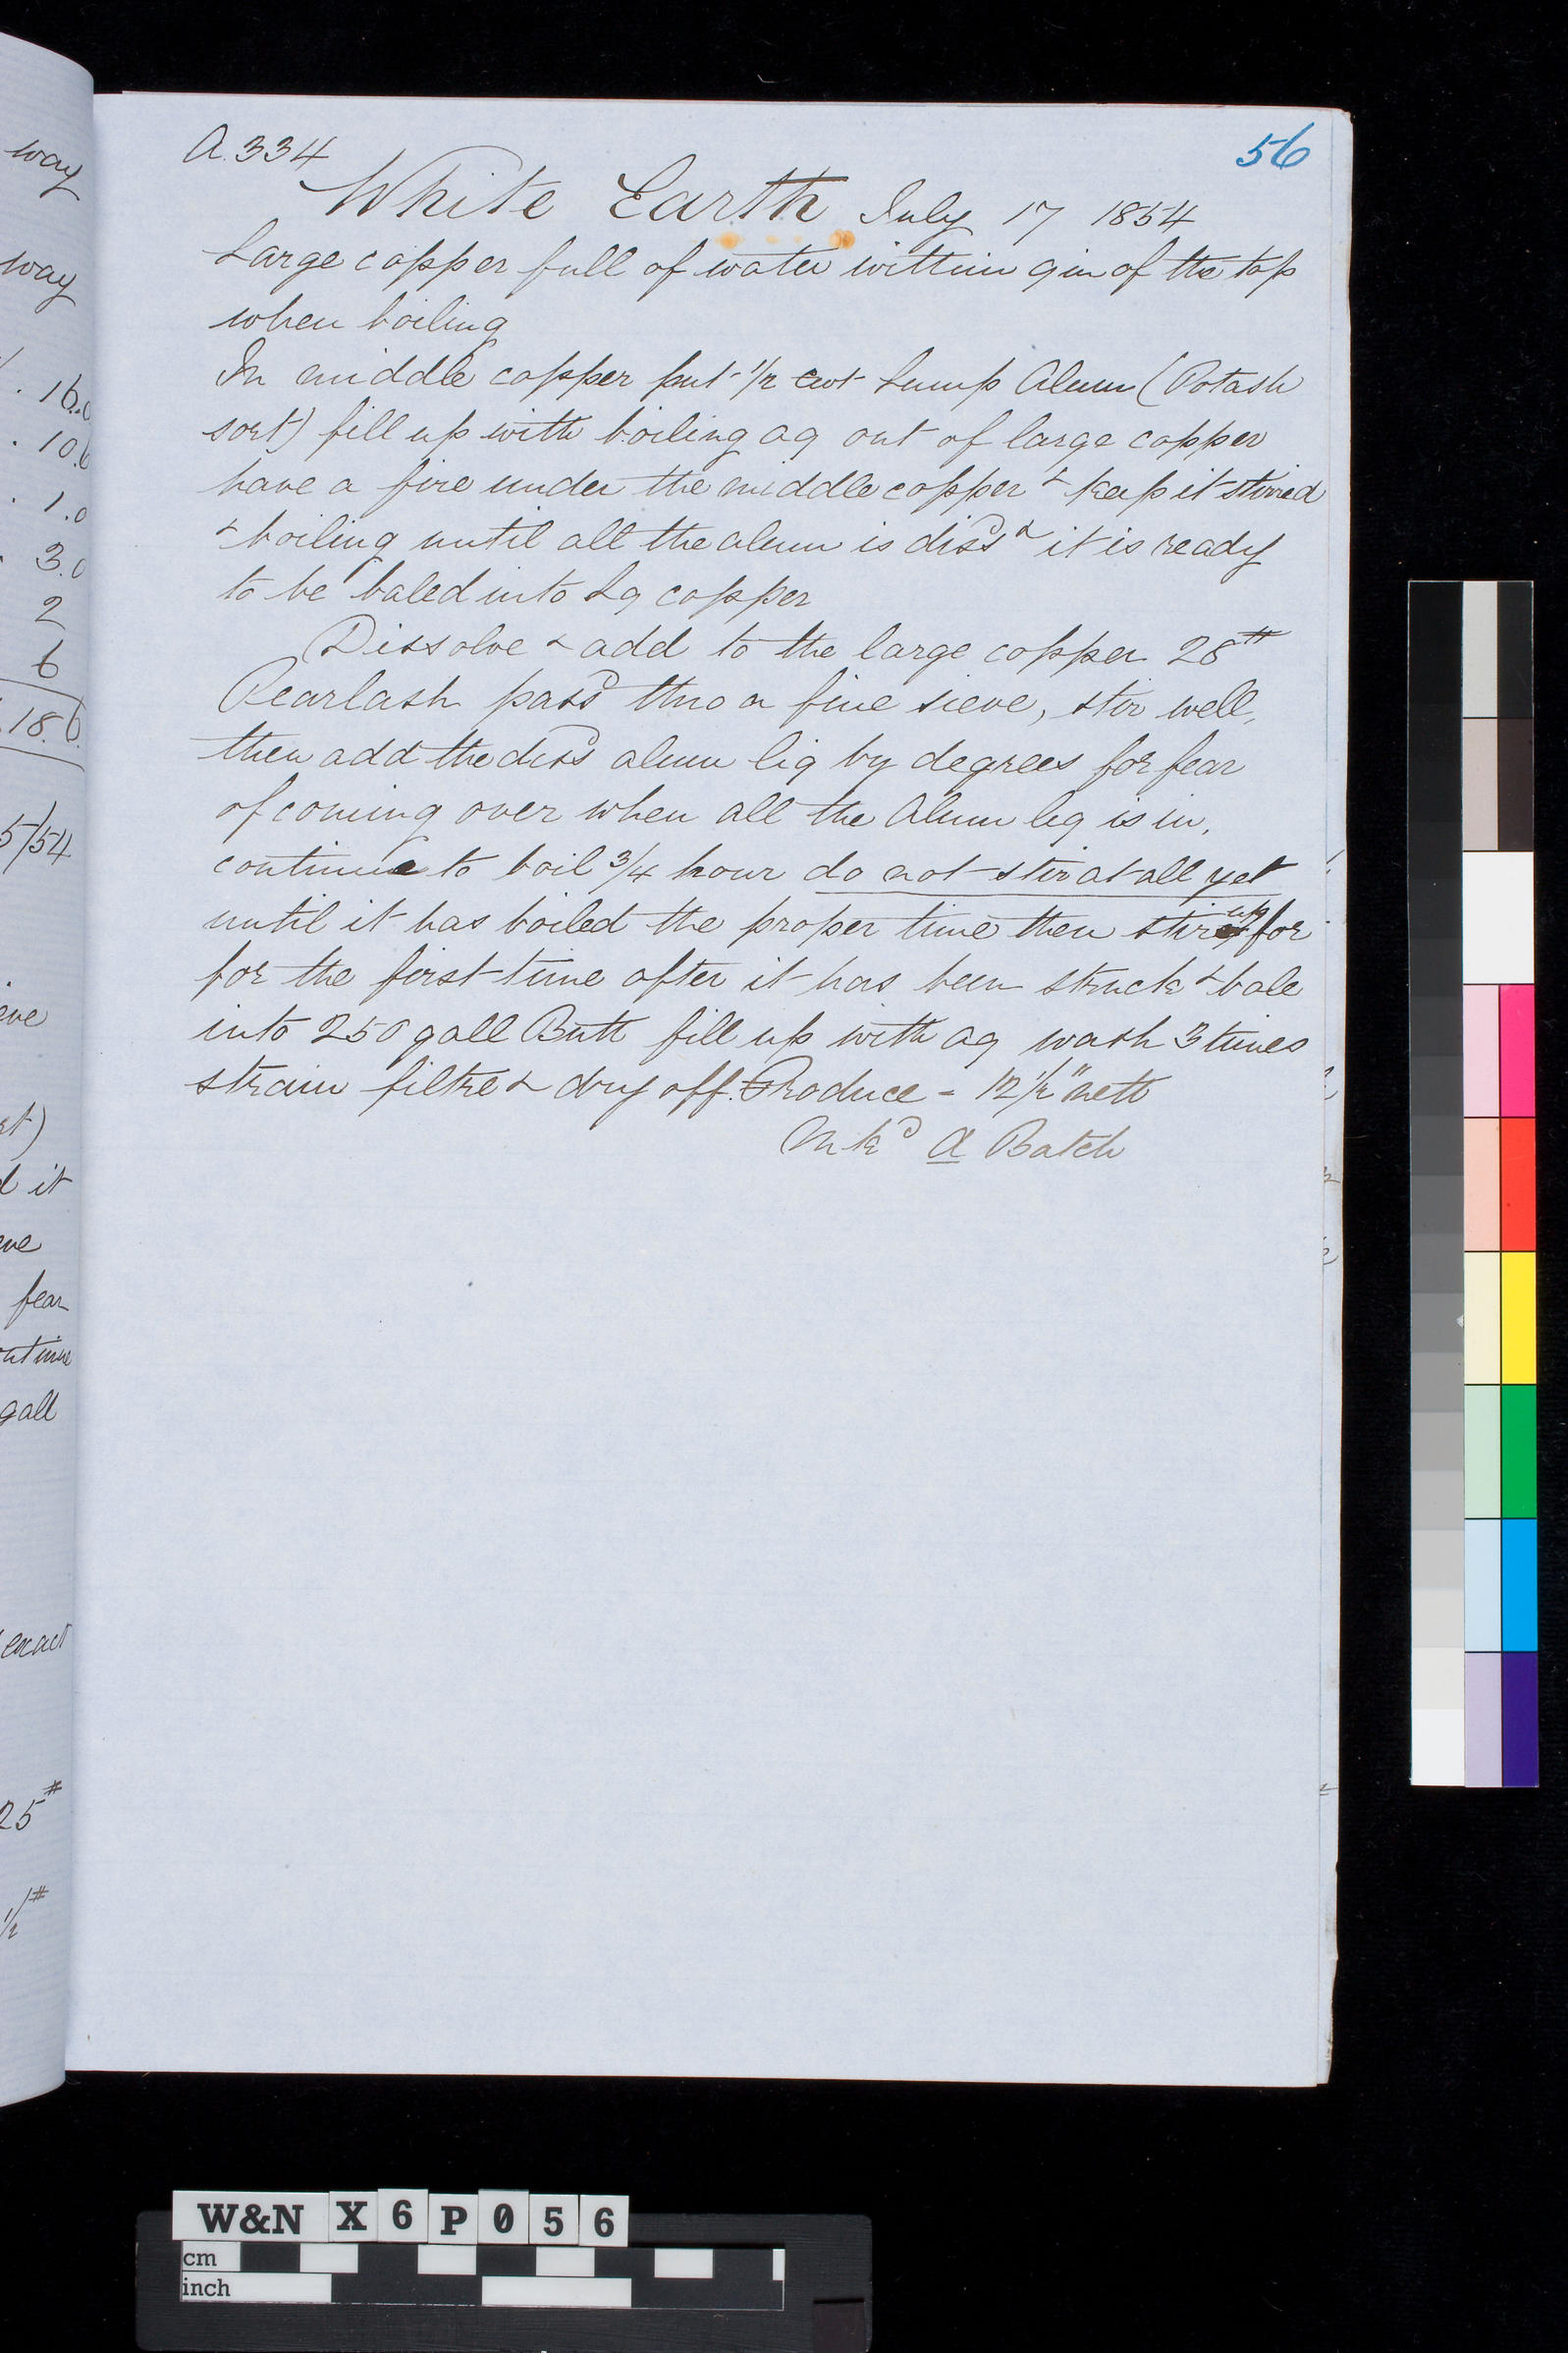 way
way
16.0
10.6
1.0
3.0
2
6
18.6
5/54
eve
st)
d it
eve
fear
ntinue
gall
exact
25#
1/2#
A.334
56
White Earth July 17 1854
Large copper full of water within 9 in of the top
when boiling
In middle copper put 1/2 cwt Lump Alum (Potash
sort) fill up with boiling aq out of large copper
have a fire under the middle copper & keep it stirred
& boiling until all the alum is dissd & it is ready
to be baled into Lg copper
Dissolve & add to the large copper 28 lb
Pearlash passd thro a fine sieve, stir well,
then add the dissd alum liq by degrees for fear
of coming over when all the Alum liq is in,
continue to boil 3/4 hour do not stir at all yet
until it has boiled the proper time then stir up for
for the first time after it has been struck & bale
into 250 gall Butt fill up with aq wash 3 times
strain filtre & dry off. Produce = 12 1/2" nett
Mkd A Batch
W&N X6P056
cm
inch